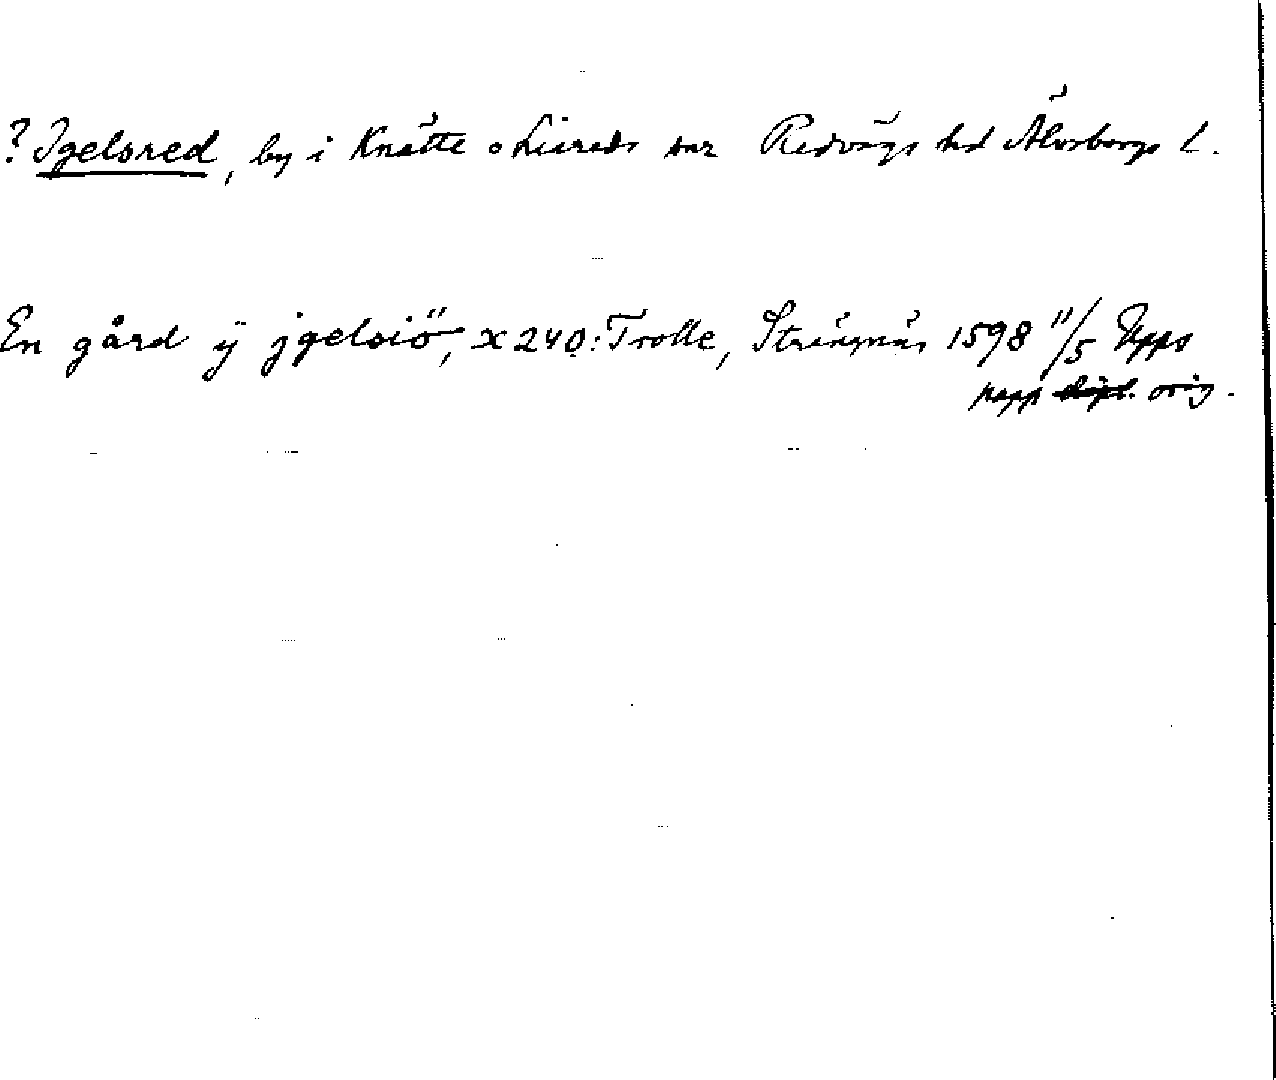 ? Igelsred, by i Knätte o Liareds snr Redvägs hd Älvsborgs l.
En gård ÿ jgelsiö, x 240: Trolle, Strängnäs 1598 11/5 Upps
papp dipl. orig.